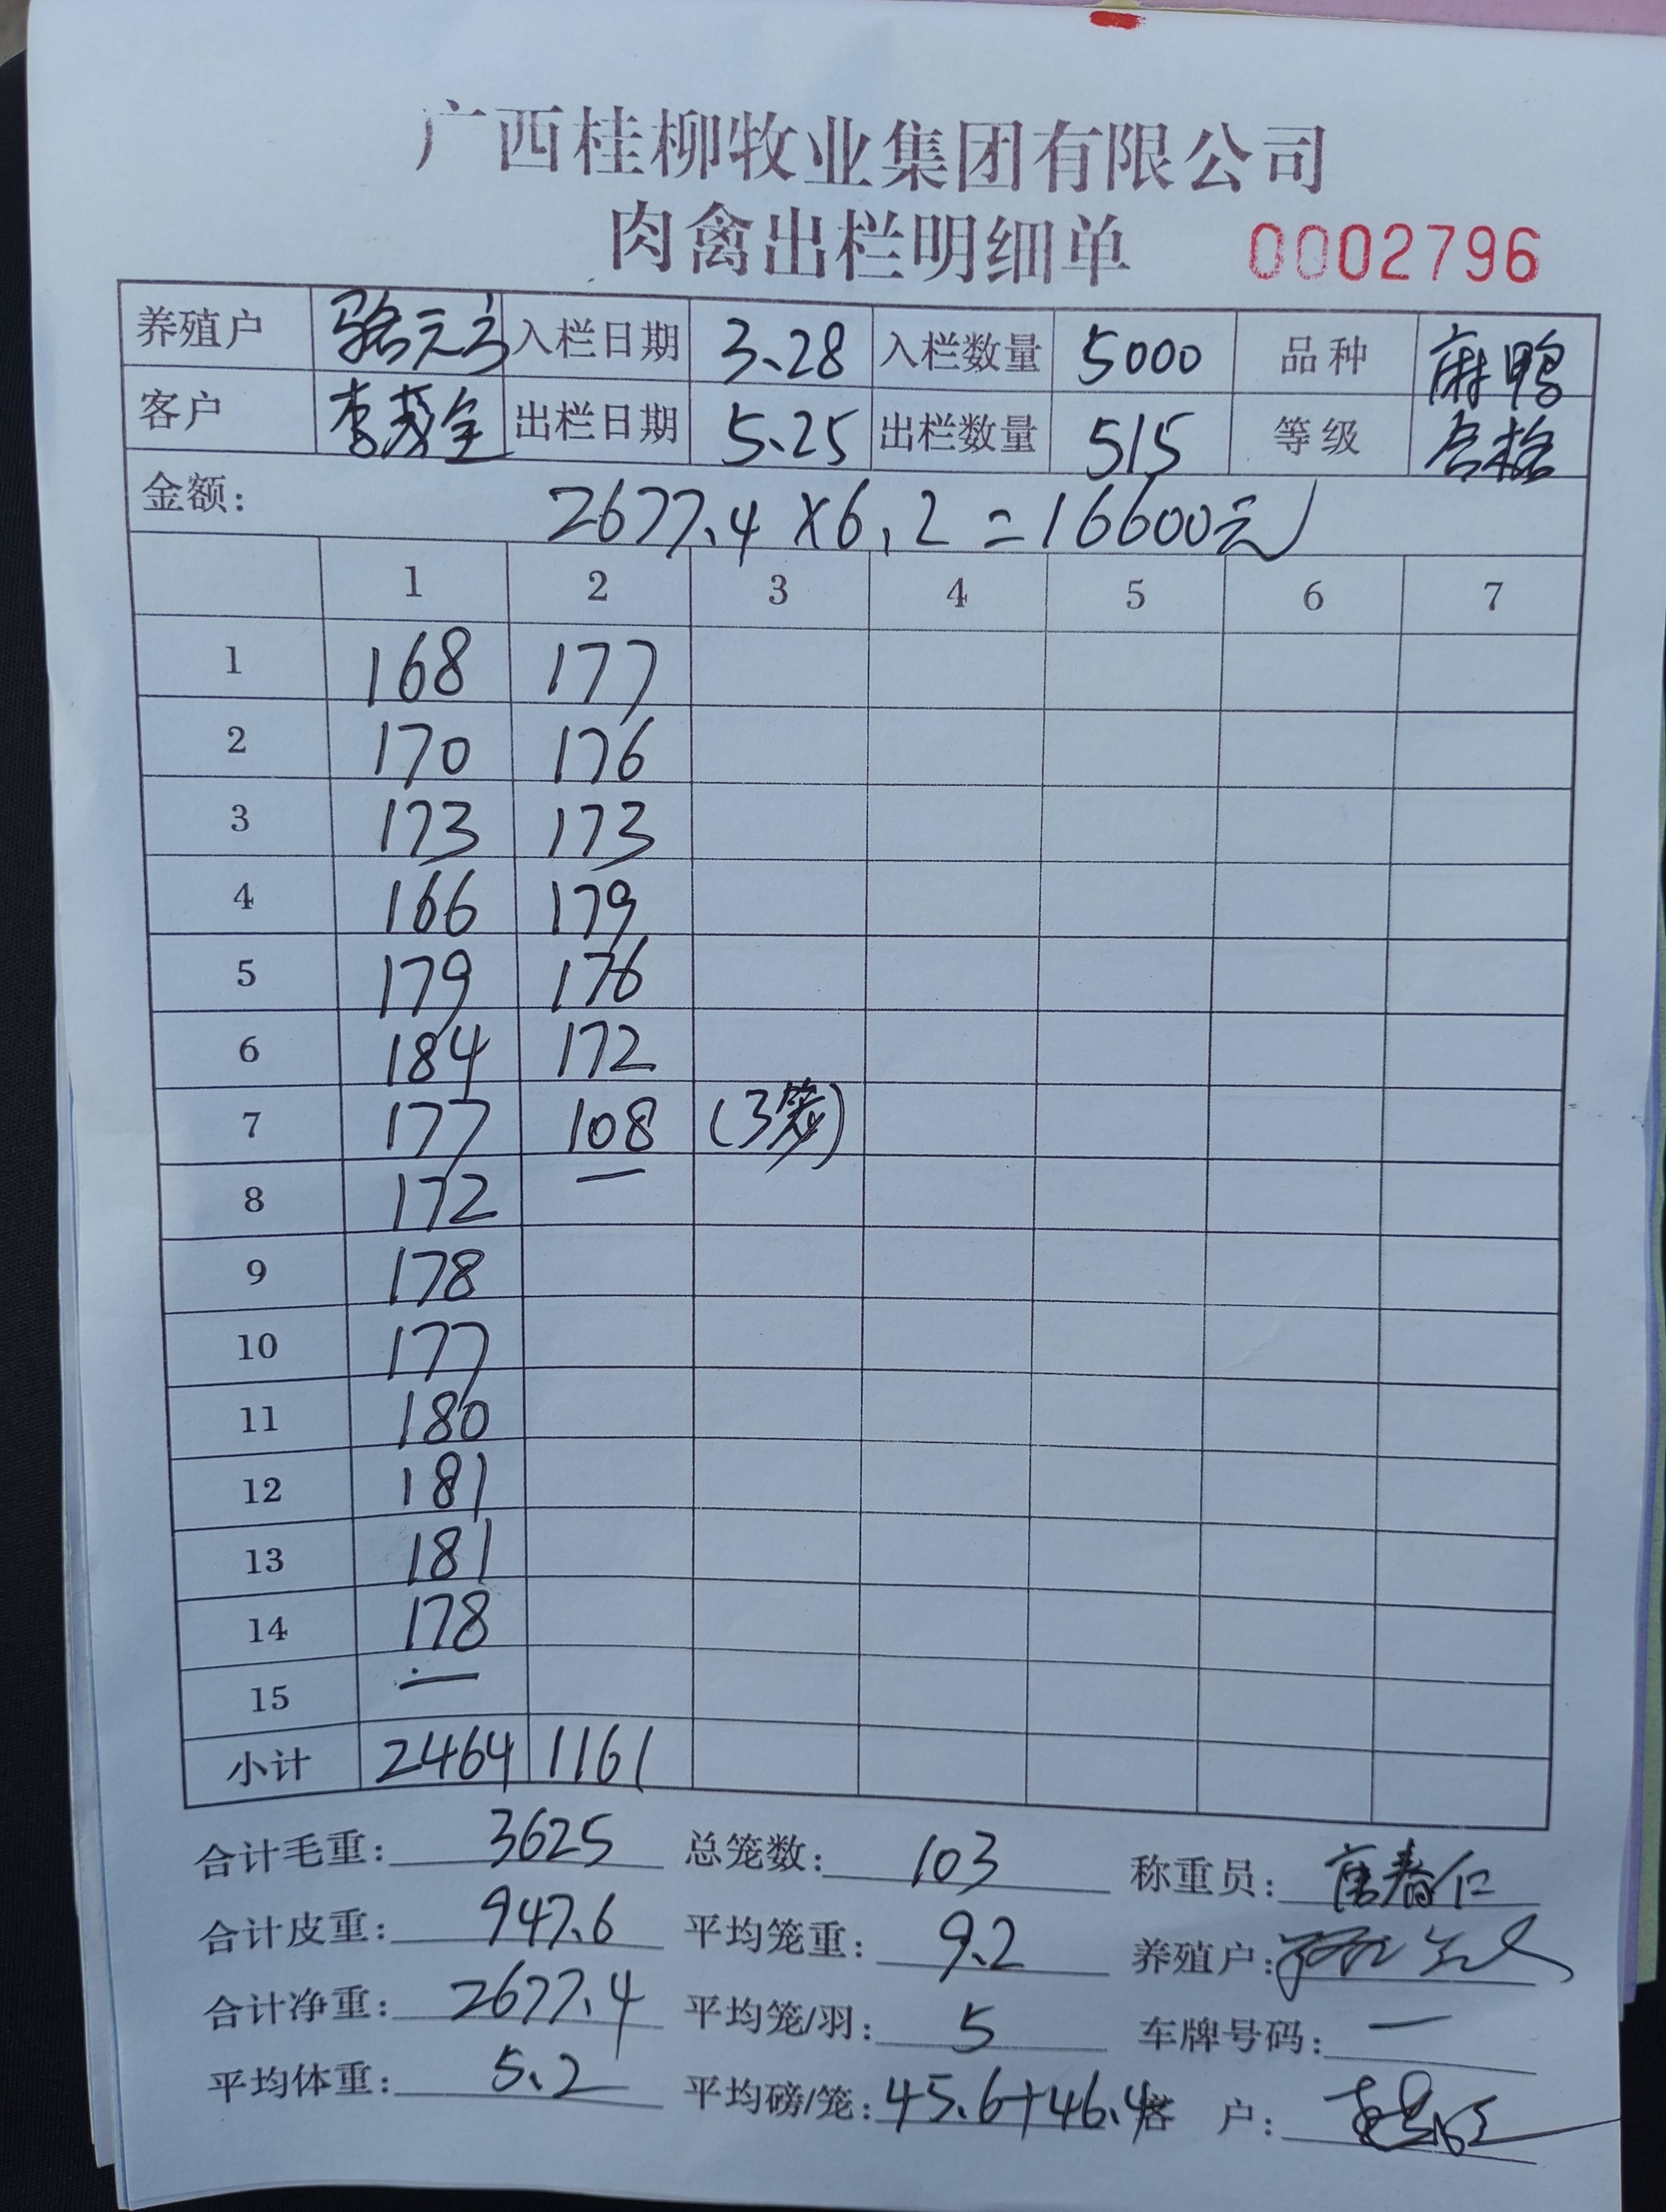 广西桂柳牧业集团有限公司
肉禽出栏明细单 0002796
养殖户 骆元方 入栏日期 3.28 入栏数量 5000 品种 麻鸭
客户 李茂全 出栏日期 5.25 出栏数量 515 等级 合格
金额: 2677.4×6.2=16600元
1 2 3 4 5 6 7
1 168 177
2 170 176
3 173 173
4 166 179
5 179 176
6 184 172
7 177 108 (3笼)
8 172
9 178
10 177
11 180
12 181
13 181
14 178
15
小计 2464 1161
合计毛重: 3625 总笼数: 103 称重员: 唐春仁
合计皮重: 947.6 平均笼重: 9.2 养殖户:
合计净重: 2677.4 平均笼/羽: 5 车牌号码: 一
平均体重: 5.2 平均磅/笼: 45.6+46.4 客户: